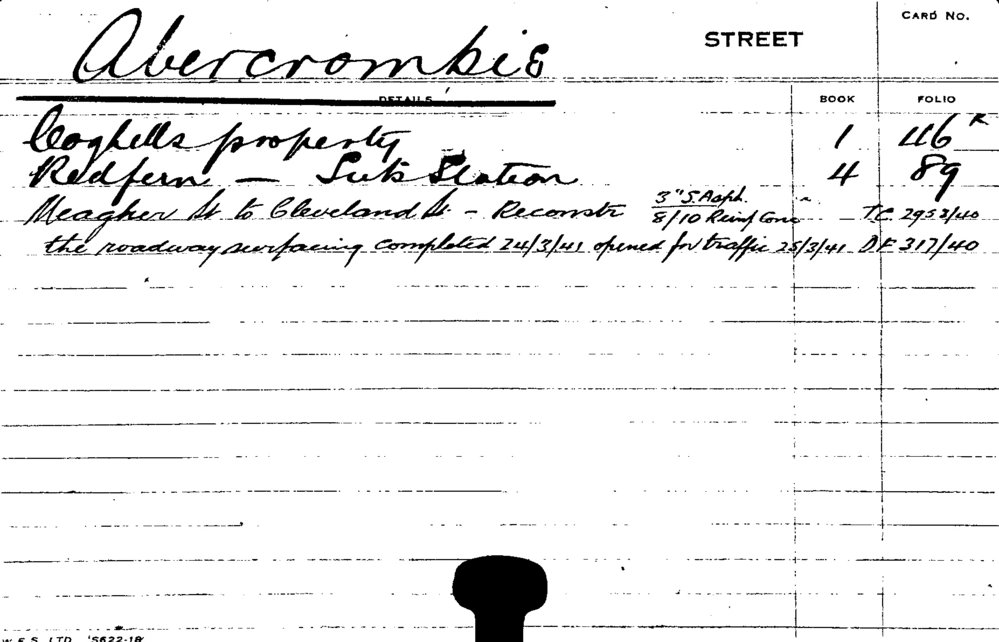 CARD NO.
Abercrombie STREET
DETAILS BOOK FOLIO
Coghills property 1 46 R
Redfern — Sub Station 4 89
Meagher St to Cleveland St. - Reconstr 3" S. Asph. 8/10 Reinf Conc T.C. 2953/40
the roadway surfacing completed 24/3/41 opened for traffic 25/3/41 D.F. 317/40
W.E.S. LTD. S622-18